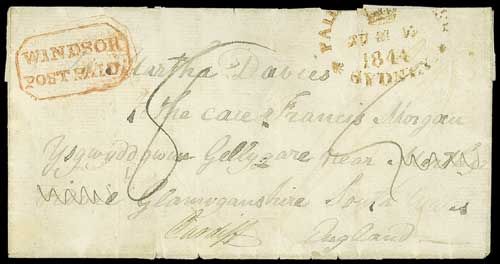 WINDSOR
POST PAID
PAID
1844
SYDNEY
Martha Davies
The care Francis Morgan
Ysgwyddgwyn Gellygare near
Glamorganshire South Wales
Cardiff England